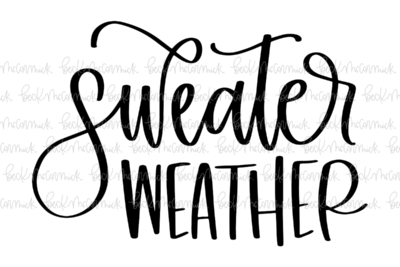 sweater
WEATHER